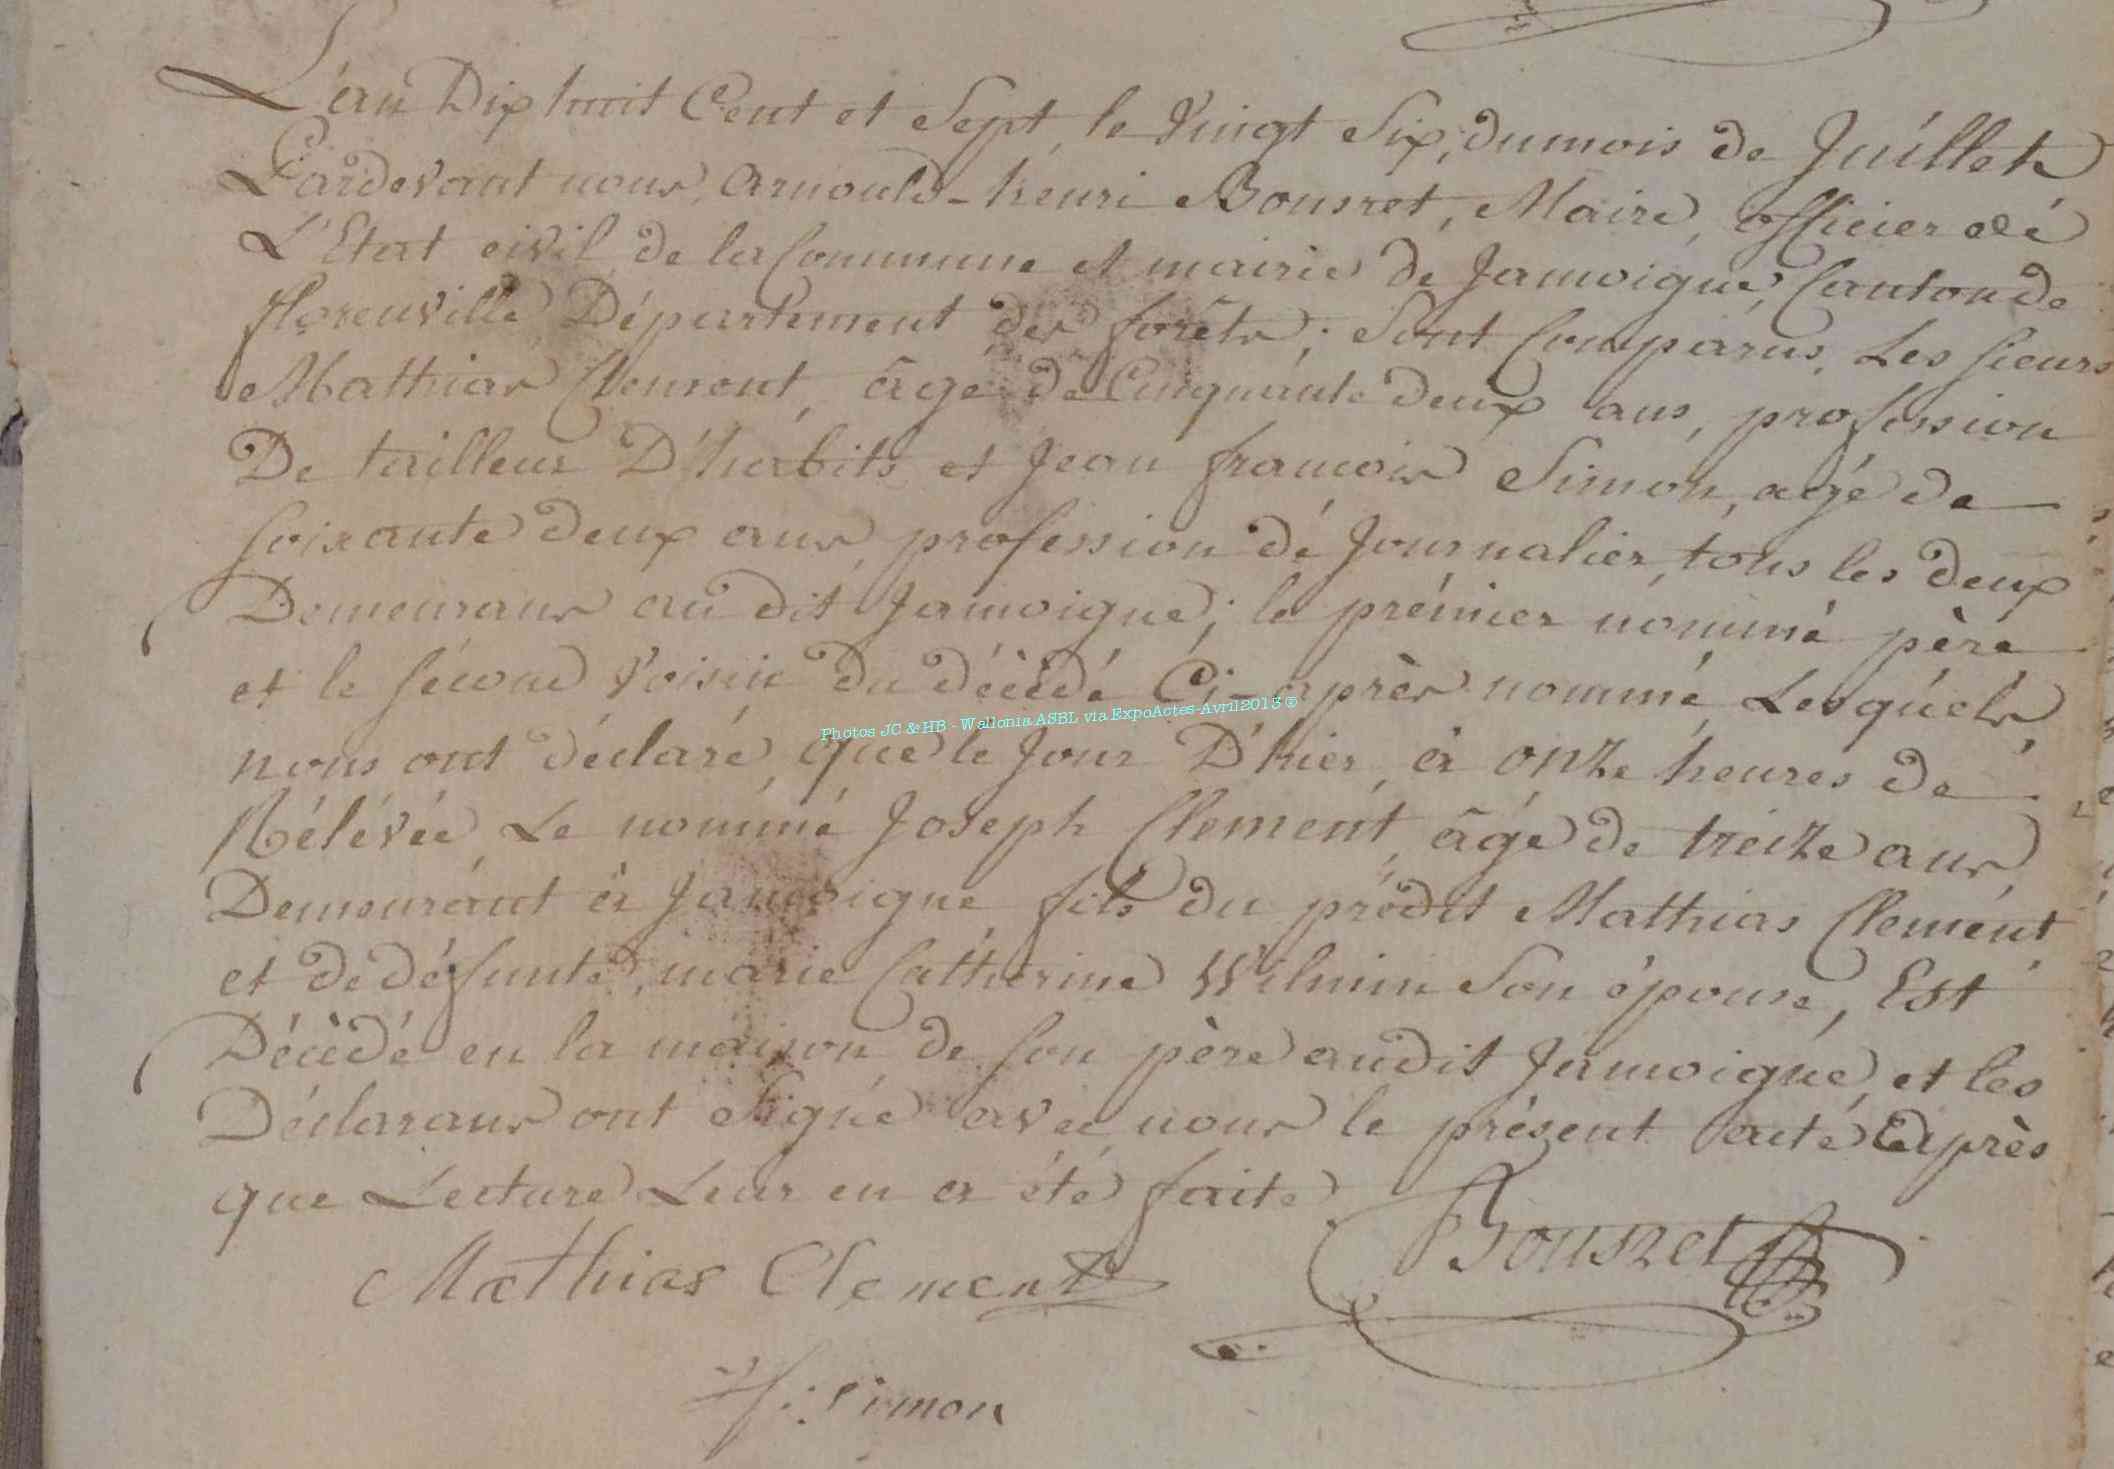 L'an Dix huit Cent et Sept, le Vingt Six, du mois de Juillet
Pardevant nous, Arnould-henri Bousret, Maire, officier dé
L'Etat civil de la Commune et mairie de Jamoigne, Canton de
florenville Département des forêts; Sont Comparus, Les sieurs
Mathias Clement, âgé de Cinquante deux ans, profession
De tailleur D'habits et Jean francois Simon, agé de
soixante deux ans, profession dé Journalier, tous les deux
Demeurans au dit Jamoigne; le prémier nommé père
et le sécond Voisin du décèdé Ci-après nommé, Lesquéls
Photos JC & HB - Wallonia ASBL via ExpoActes-Avril2013 ©
nous ont déclaré, que le Jour D'hier, à onze heures de
Rélévée, Le nommé Joseph Clement, âgé de treize ans,
Demeurant à Jamoigne, fils du prédit Mathias Clement
et de défunte, marie Catherine Wilmin Son épouse, Est
Décèdé en la maison de son père audit Jamoigne, et les
Déclarans ont Signé avec nous le présent acté Après
que Lecture Leur en a été faite
Mathias Clement
Bousret
Simon